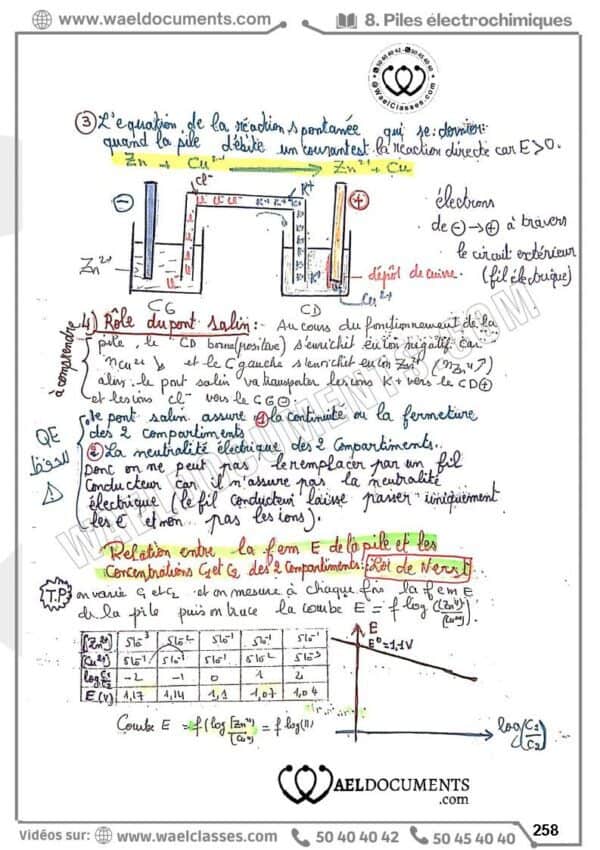 www.waeldocuments.com
8. Piles électrochimiques
50 40 40 42 - 50 45 40 40
@WaelClasses.com
③ L'equation de la réaction spontanée qui se
quand la pile débite un courant est la réaction directe car E>0.
Zn + Cu²⁺ → Zn²⁺ + Cu
Cl⁻
K⁺
⊖
⊕
Zn²⁺
CG
CD
dépôt de cuivre.
Cu²⁺
électrons
de ⊖ → ⊕ à travers
le circuit extérieur
(fil électrique)
à comprendre
4) Rôle du pont salin: Au cours du fonctionnement de la
pile, le CD borne(positive) s'enrichit en ion négatif car
nCu²⁺ ↘ et le C gauche s'enrichit en ion Zn²⁺ (nZn²⁺↗)
alors le pont salin va transporter les ions K+ vers le CD⊕
et les ions Cl⁻ vers le CG⊖.
QE
للحفظ
le pont salin assure ① la continuité ou la fermeture
des 2 compartiments
② La neutralité électrique des 2 compartiments.
Donc on ne peut pas le remplacer par un fil
Conducteur car il n'assure pas la neutralité
électrique (le fil conducteur laisse passer uniquement
les e⁻ et non pas les ions).
WAELDOCUMENTS.COM
Relation entre la fem E de la pile et les
Concentrations C₁ et C₂ des 2 Compartiments: Loi de Nerst
T.P) on varie C₁ et C₂ et on mesure à chaque fois la fem E
de la pile puis on trace la combe E = f log([Zn²⁺]/[Cu²⁺])
[Zn²⁺] 5 10⁻³ 5 10⁻² 5 10⁻¹ 5 10⁻¹ 5 10⁻¹
[Cu²⁺] 5 10⁻¹ 5 10⁻¹ 5 10⁻¹ 5 10⁻² 5 10⁻³
log C₁/C₂ -2 -1 0 1 2
E(V) 1,17 1,14 1,1 1,07 1,04
E
E⁰=1,1V
log(C₁/C₂)
Combe E = f(log [Zn²⁺]/[Cu²⁺] = f log(Π)
WAELDOCUMENTS
.com
258
Vidéos sur: www.waelclasses.com 50 40 40 42 50 45 40 40